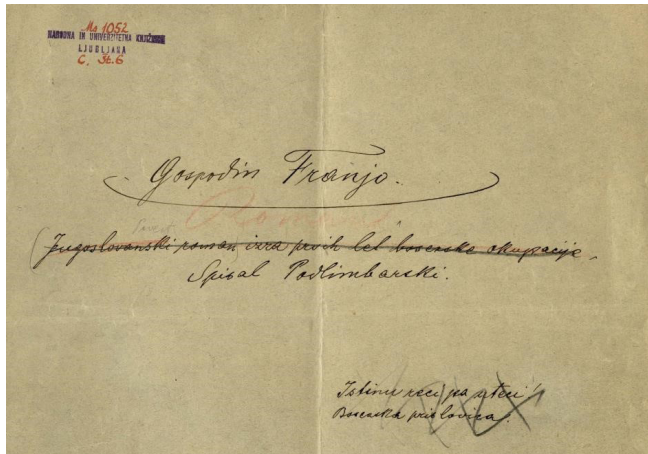 Ms 1052
NARODNA IN UNIVERZITETNA KNJIŽNICA
LJUBLJANA
C. št. 6
Gospodin Franjo.
Roman
(Jugoslovanski roman izza prvih let bosenske okupacije.
Spisal Podlimbarski.
Istinu reci pa uteci!
Bosenska prislovica.